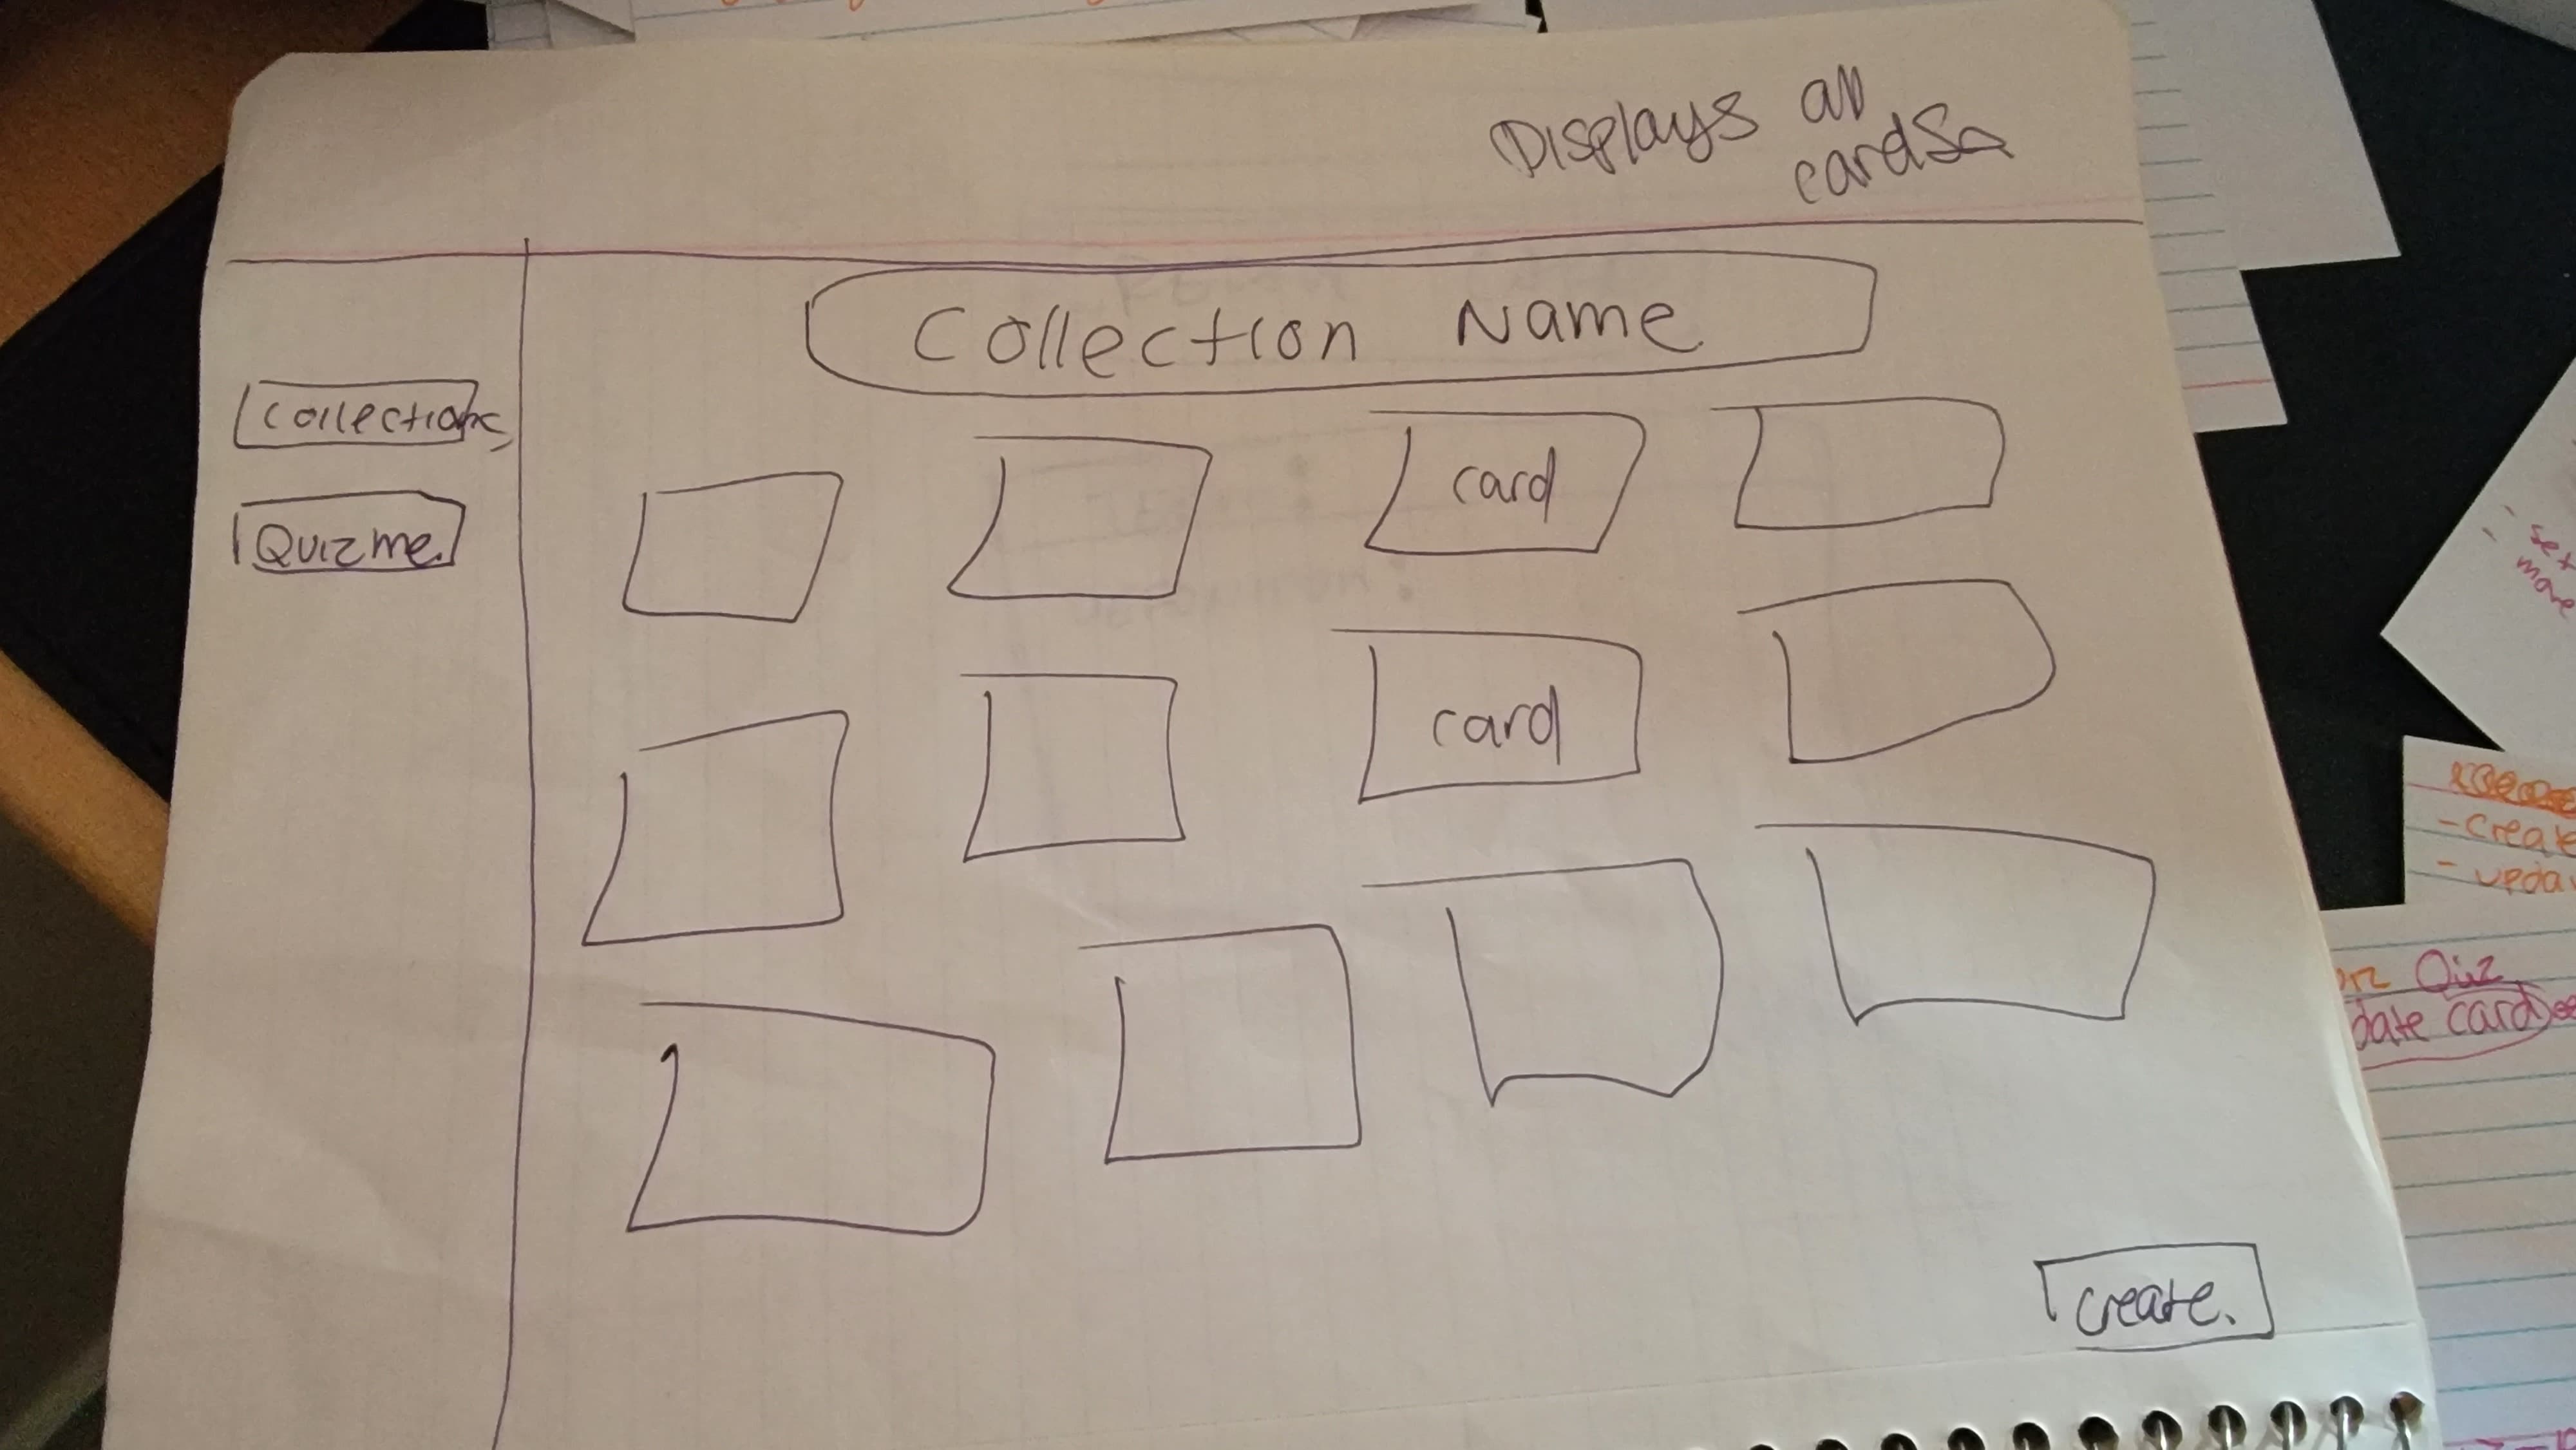 Displays all
cards
Collection Name
Collections
Quiz me.
card
card
create.
- set
- create
Quiz
date card